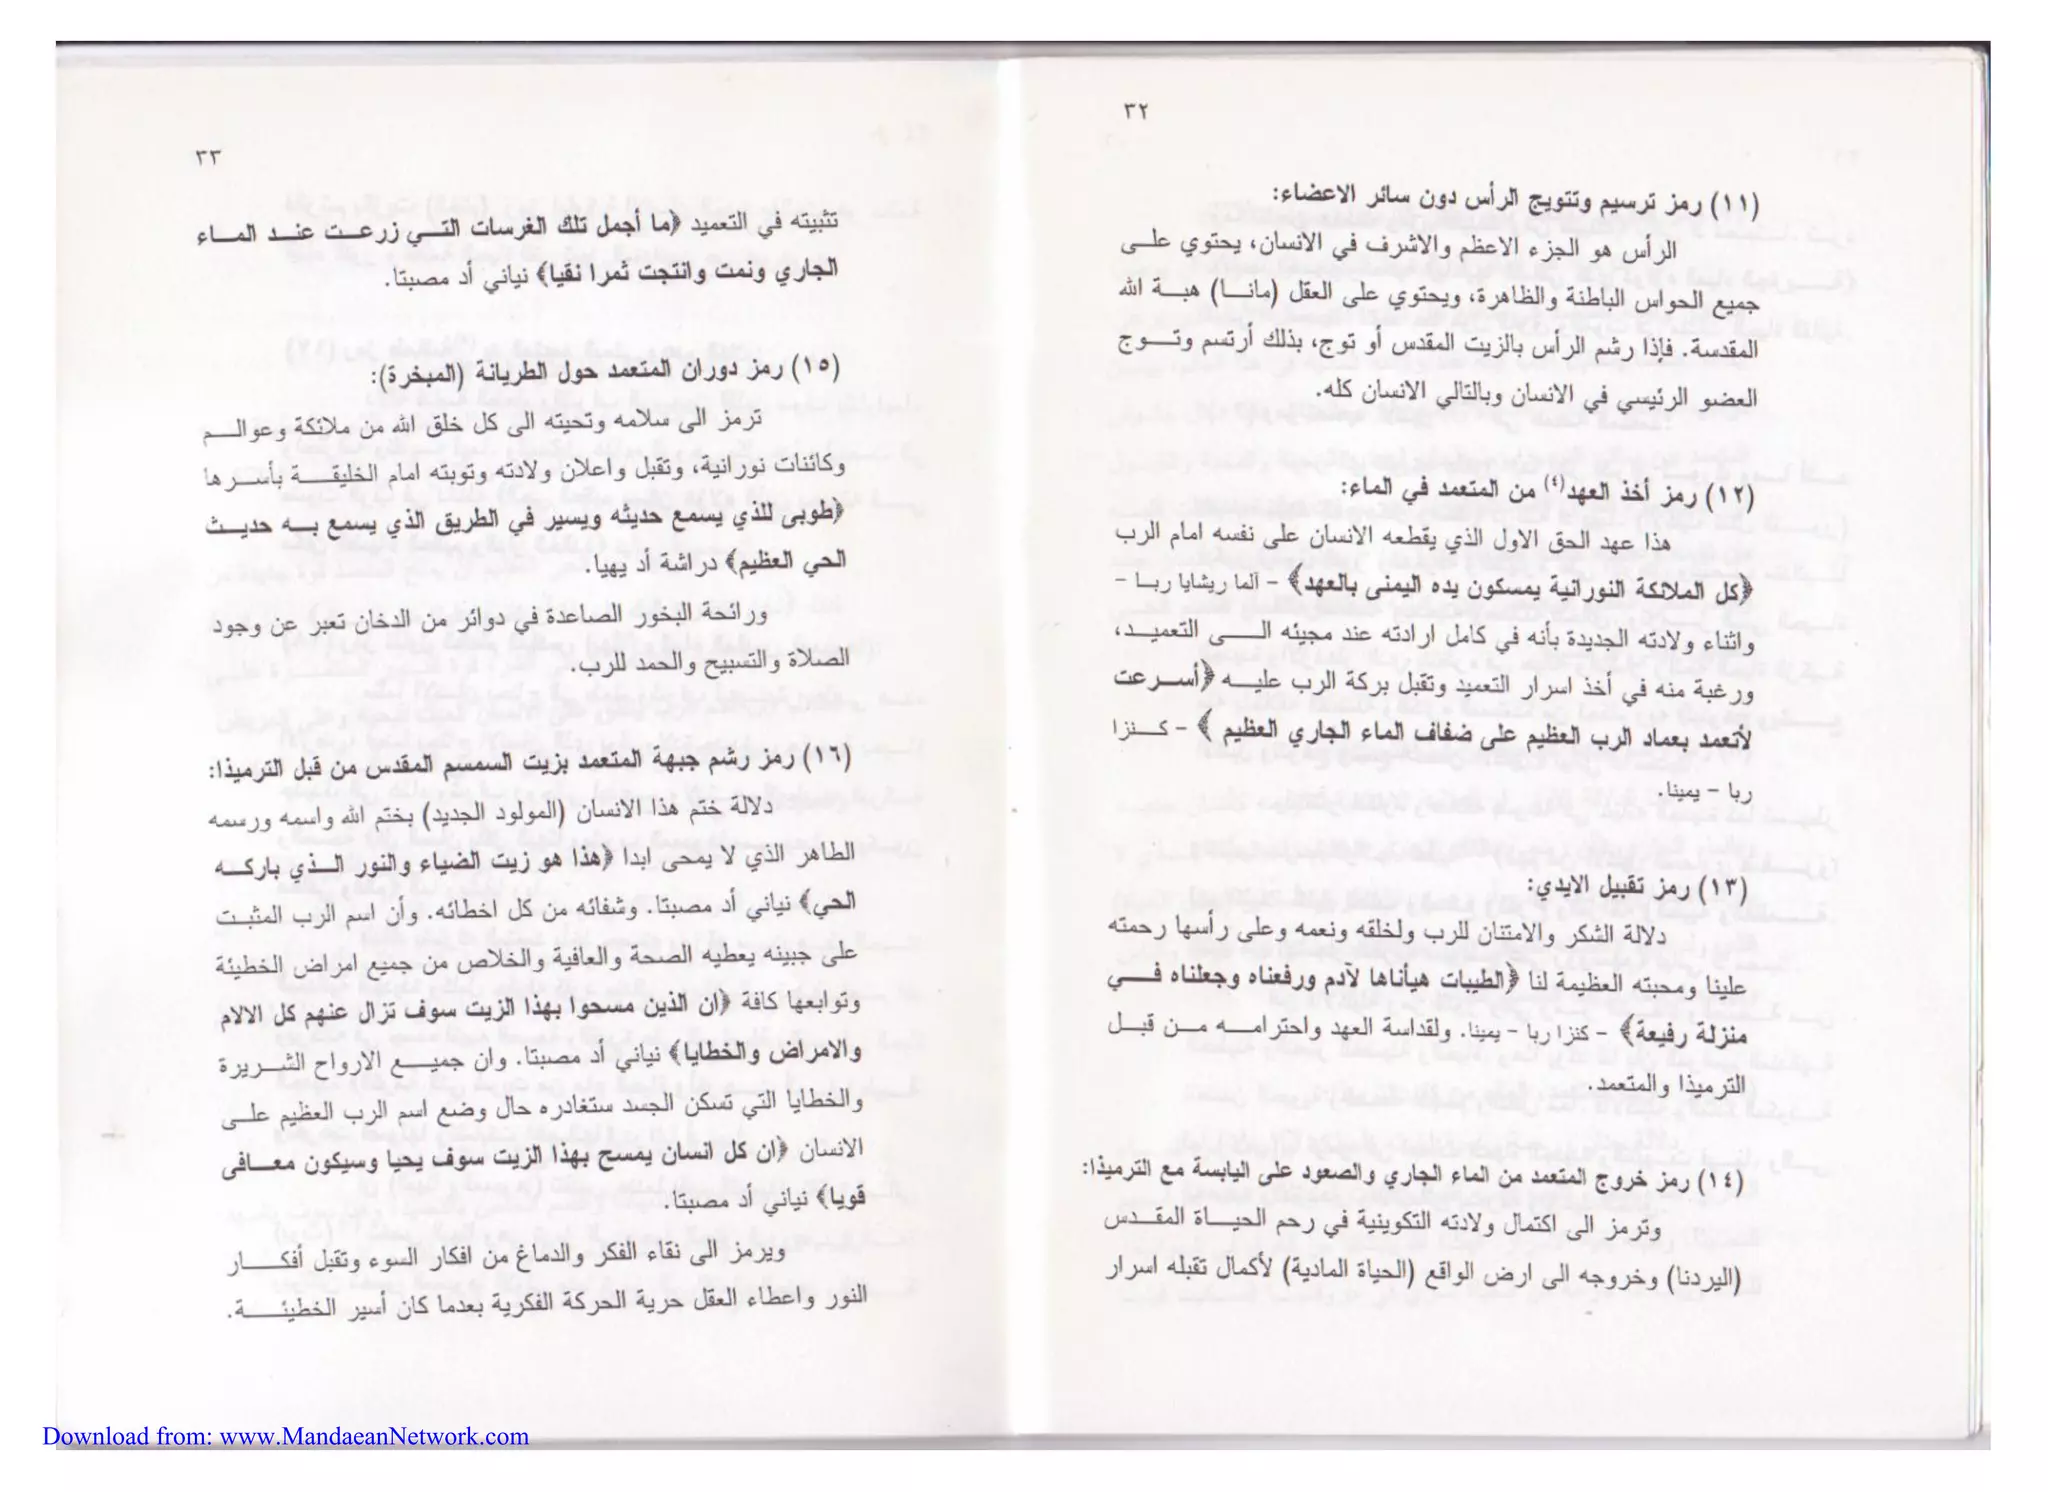 ٣٢
(١١) رمز ترسيم وتتويج الرأس دون سائر الاعضاء:
الرأس هو الجزء الاعظم والاشرف في الانسان، يحتوي على
جميع الحواس الباطنة والظاهرة، ويحتوي على العقل (مانا) هبة الله
المقدسة. فإذا رشم الرأس بالزيت المقدس أو توج، بذلك أرتسم وتوج
العضو الرئيسي في الانسان وبالتالي الانسان كله.
(١٢) رمز أخذ العهد(٤) من المتعمد في الماء:
هذا عهد الحق الاول الذي يقطعه الانسان على نفسه امام الرب
﴿كل الملائكة النورانية يمسكون يده اليمنى بالعهد﴾ - ألما ريشايا ربا -
واثناء ولادته الجديدة بأنه في كامل إرادته عند مجيئه الى التعميد،
ورغبة منه في أخذ اسرار التعميد وتقبل بركة الرب عليه ﴿أسرعت
لأتعمد بعماد الرب العظيم على ضفاف الماء الجاري العظيم ﴾ - كنزا
ربا - يمينا.
(١٣) رمز تقبيل الايدي:
دلالة الشكر والامتنان للرب ولخلقه ونعمه وعلى رأسها رحمته
علينا ومحبته العظيمة لنا ﴿الطيبات هيأناها لآدم ورفعناه وجعلناه في
منزلة رفيعة﴾ - كنزا ربا - يمينا. ولقداسة العهد واحترامه من قبل
الترميذا والمتعمد.
(١٤) رمز خروج المتعمد من الماء الجاري والصعود على اليابسة مع الترميذا:
وترمز الى اكتمال ولادته التكوينية في رحم الحياة المقدس
(اليردنا) وخروجه الى ارض الواقع (الحياة المادية) لأكمال تقبله اسرار
٣٣
تثبيته في التعميد ﴿ما أجمل تلك الغرسات التي زرعت عند الماء
الجاري ونمت وانتجت ثمرا نقيا﴾ نياني أد مصبتا.
(١٥) رمز دوران المتعمد حول الطريانة (المبخرة):
ترمز الى سلامه وتحيته الى كل خلق الله من ملائكة وعوالم
وكائنات نورانية، وتقبل واعلان ولادته وتوبته امام الخليقة بأسرها
﴿طوبى للذي يسمع حديثه ويسير في الطريق الذي يسمع به حديث
الحي العظيم﴾ دراشة أد يهيا.
ورائحة البخور الصاعدة في دوائر من الدخان تعبر عن وجود
الصلاة والتسبيح والحمد للرب.
(١٦) رمز رشم جبهة المتعمد بزيت السمسم المقدس من قبل الترميذا:
دلالة ختم هذا الانسان (المولود الجديد) بختم الله واسمه ورسمه
الطاهر الذي لا يمحى ابدا ﴿هذا هو زيت الضياء والنور الذي باركه
الحي﴾ نياني أد مصبتا. وشفائه من كل اخطائه. وأن اسم الرب المثبت
على جبينه يعطيه الصحة والعافية والخلاص من جميع امراض الخطيئة
وتوابعها كافة ﴿ان الذين مسحوا بهذا الزيت سوف تزال عنهم كل الالام
والامراض والخطايا﴾ نياني أد مصبتا. وان جميع الارواح الشريرة
والخطايا التي تسكن الجسد ستغادره حال وضع اسم الرب العظيم على
الانسان ﴿ان كل انسان يمسح بهذا الزيت سوف يحيا وسيكون معافى
قويا﴾ نياني أد مصبتا.
ويرمز الى نقاء الفكر والدماغ من افكار السوء وتقبل أفكار
النور واعطاء العقل حرية الحركة الفكرية بعدما كان أسير الخطيئة.
Download from: www.MandaeanNetwork.com